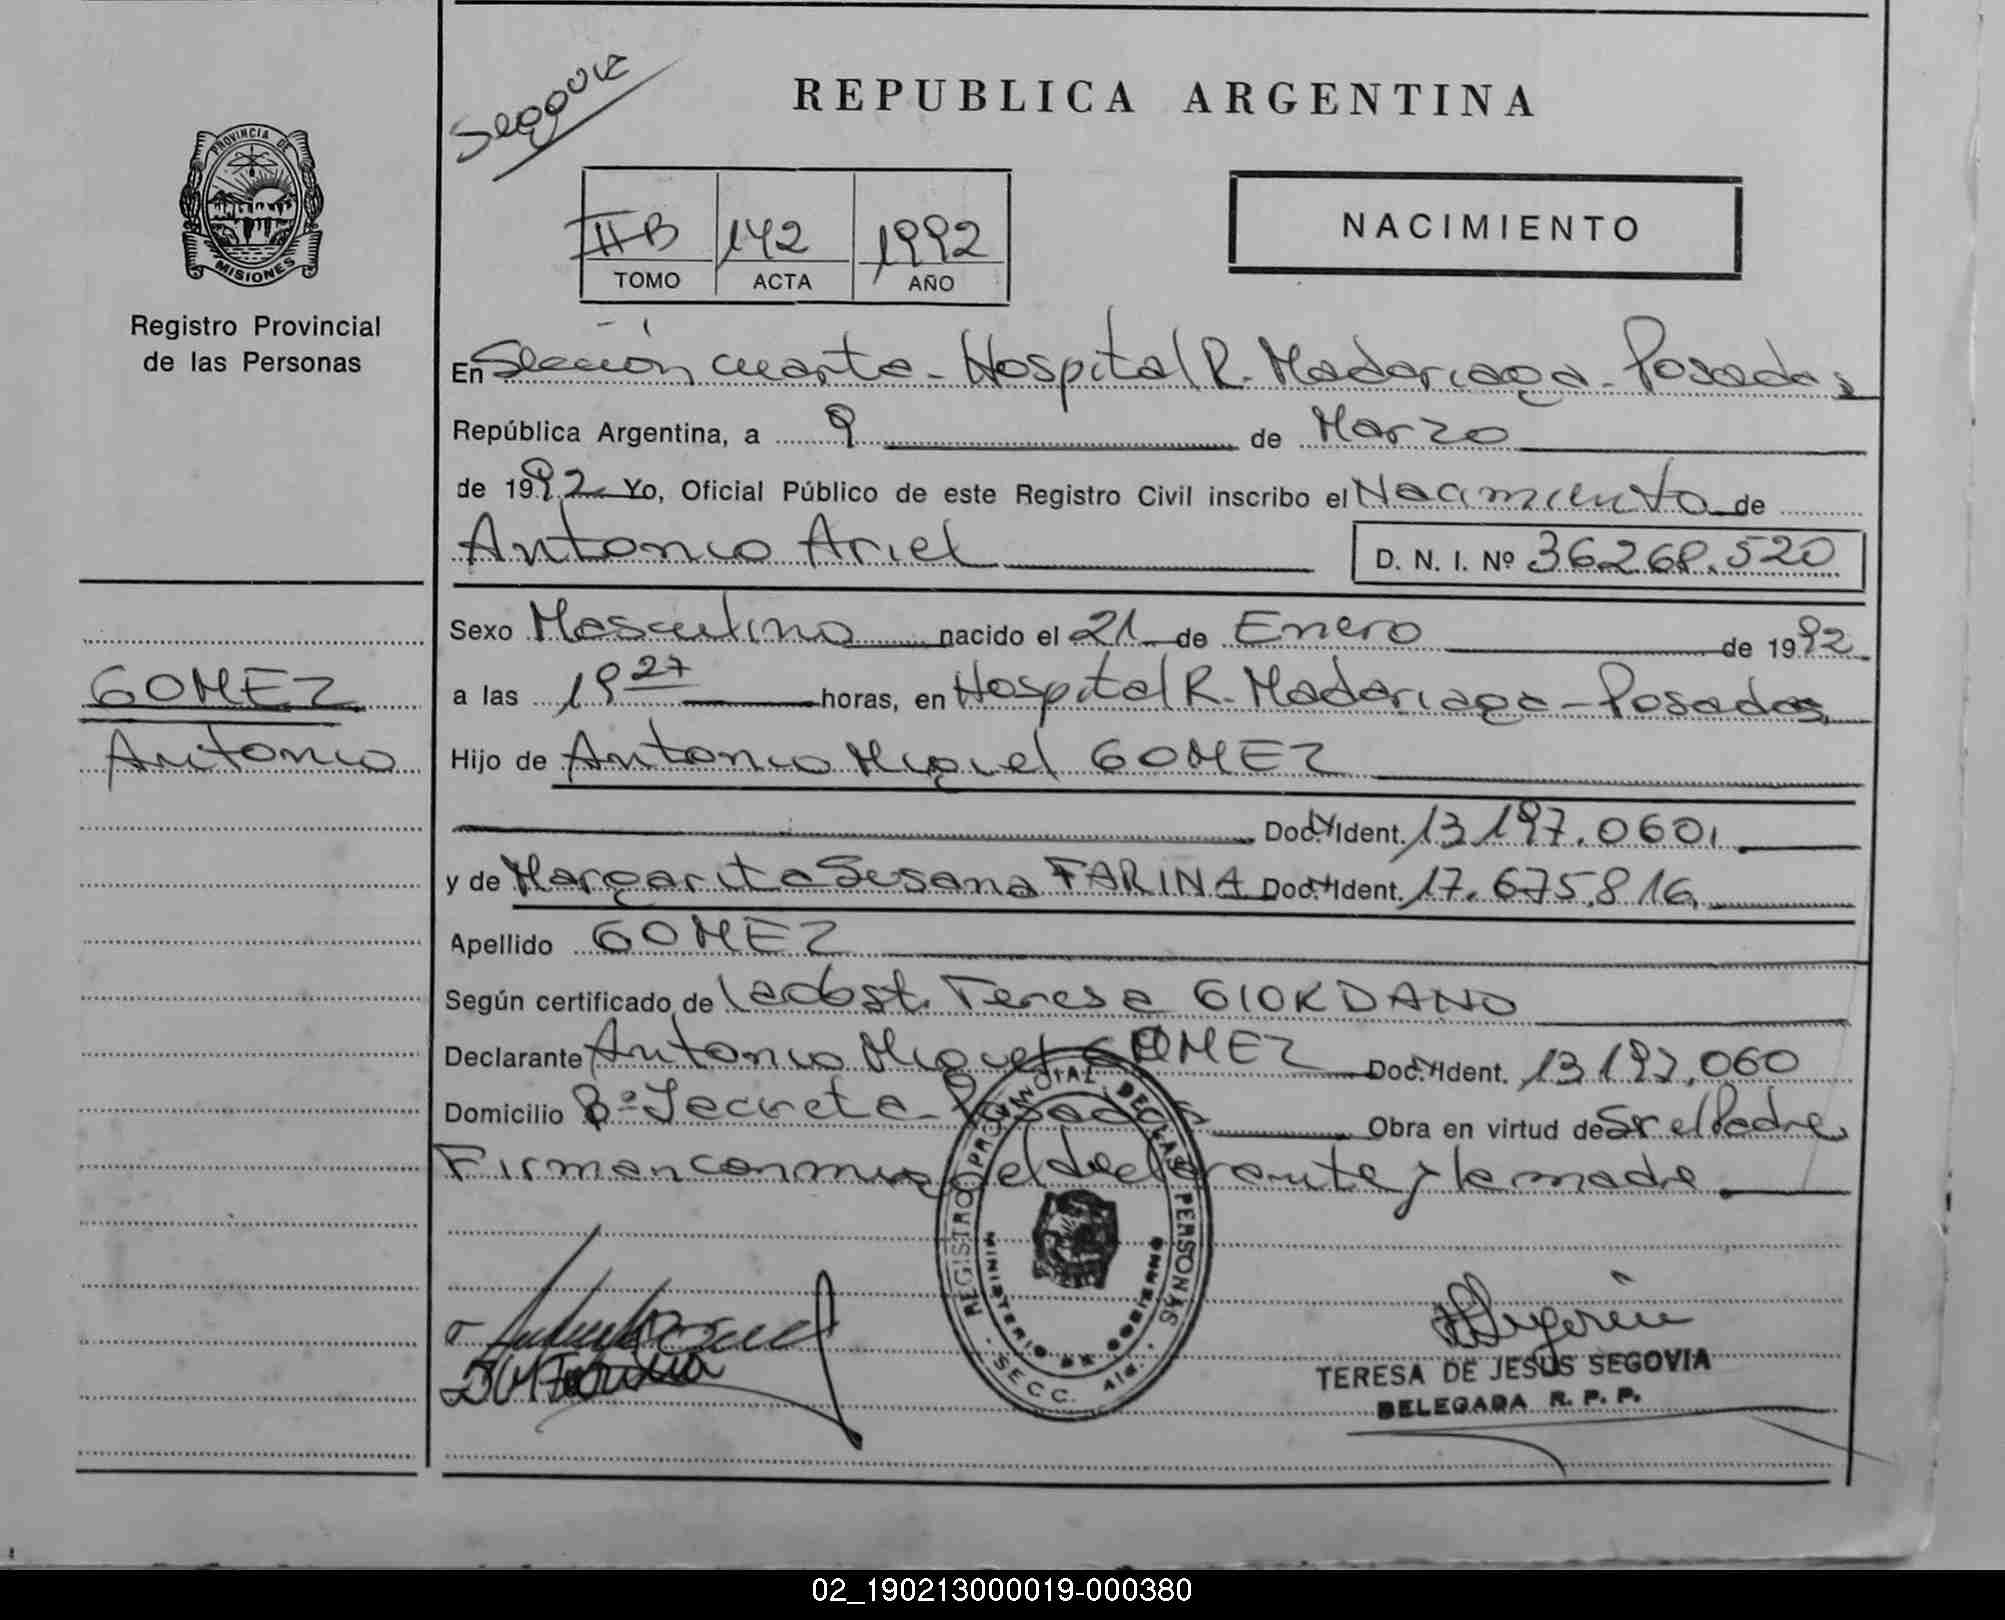 Segovia
REPUBLICA ARGENTINA
PROVINCIA DE
MISIONES
Registro Provincial
de las Personas
II-B 142 1992
TOMO ACTA AÑO
NACIMIENTO
En Sección cuarta - Hospital R. Madariaga - Posadas
República Argentina, a 9 de Marzo
de 1992 Yo, Oficial Público de este Registro Civil inscribo el Nacimiento de
Antonio Ariel D. N. I. Nº 36.268.520
Sexo Masculino nacido el 21 de Enero de 1992
GOMEZ
Antonio
a las 19 27 horas, en Hospital R. Madariaga - Posadas
Hijo de Antonio Miguel GOMEZ
Doc. Ident. 13.197.060
y de Margarita Susana FARINA Doc. Ident. 17.675.816
Apellido GOMEZ
Según certificado de la obst. Teresa GIORDANO
Declarante Antonio Miguel GOMEZ Doc. Ident. 13.197.060
Domicilio Bº Secreta - Posadas Obra en virtud de Sr el Padre
Firman conmigo el declarante y la madre
REGISTRO PROVINCIAL DE LAS PERSONAS
MINISTERIO DE GOBIERNO
SECC. 4ta.
TERESA DE JESUS SEGOVIA
DELEGADA R. P. P.
02_190213000019-000380